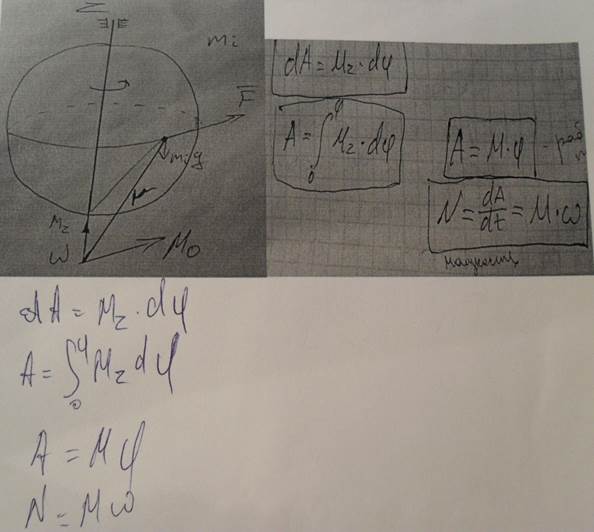 Z
mᵢ
F̅
mᵢg
r
M_z
ω
M₀
dA = M_z · dφ
A = ∫₀^φ M_z · dφ
A = M · φ
N = dA/dt = M · ω
мощность
dA = M_z · dφ
A = ∫₀^φ M_z dφ
A = M φ
N = M ω